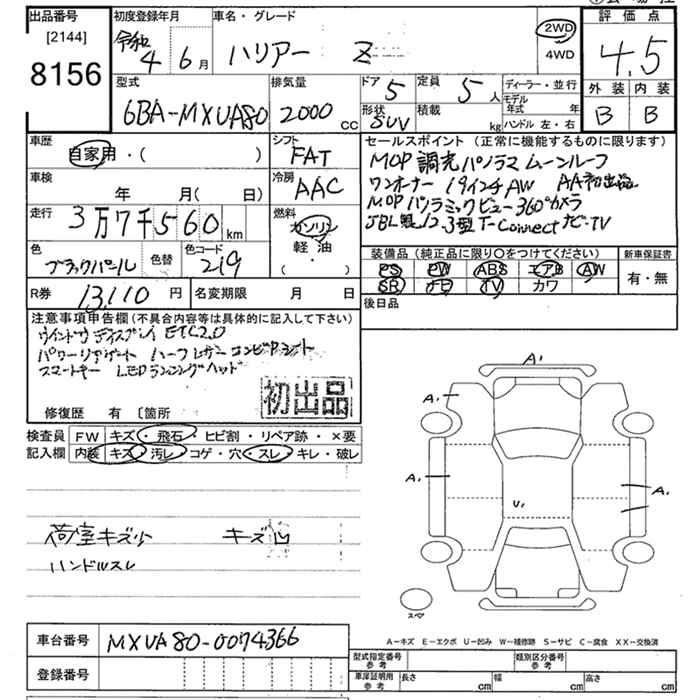 出品番号 初度登録年月 車名・グレード 評価点
[2144] 令和 4 6月 ハリアー Z 2WD 4WD 4.5
8156 型式 排気量 ドア 5 定員 5人 ディーラー・並行 外装 内装
6BA-MXUA80 2000cc 形状 SUV 積載 kg モデル年式 年 ハンドル 左・右 B B
車歴 シフト セールスポイント(正常に機能するものに限ります)
自家用・( ) FAT MOP 調光パノラマ ムーンルーフ
車検 冷房 ワンオーナー 19インチAW AA初出品
年 月( 日) AAC MOP パノラミックビュー 360°カメラ
走行 3万7千560km 燃料 JBL製12.3型 T-Connect ナビ・TV
ガソリン・軽油・( )
色 色替 色コード 装備品(純正品に限り○をつけてください) 新車保証書
ブラックパール 219 PS PW ABS エアB AW 有・無
R券 13,110円 名変期限 月 日 SR ナビ TV カワ
後日品
注意事項申告欄(不具合内容等は具体的に記入して下さい)
ウインドウディスプレイ ETC2.0
パワーリヤゲート ハーフレザーコンビシート
スマートキー LEDランニングヘッド
初出品
修復歴 有 〔箇所
検査員 FW キズ・飛石・ヒビ割・リペア跡・×要
記入欄 内装 キズ・汚レ・コゲ・穴・スレ・キレ・破レ
A' A. A. A. U. スペア
荷室キズ小 キズ凹
ハンドルスレ
車台番号 MXUA80-0074366
A−キズ E−エクボ U−凹み W−補修跡 S−サビ C−腐食 XX−交換済
登録番号
型式指定番号 参考 類別区分番号 参考
車庫証明用 参考 長さ cm 幅 cm 高さ cm